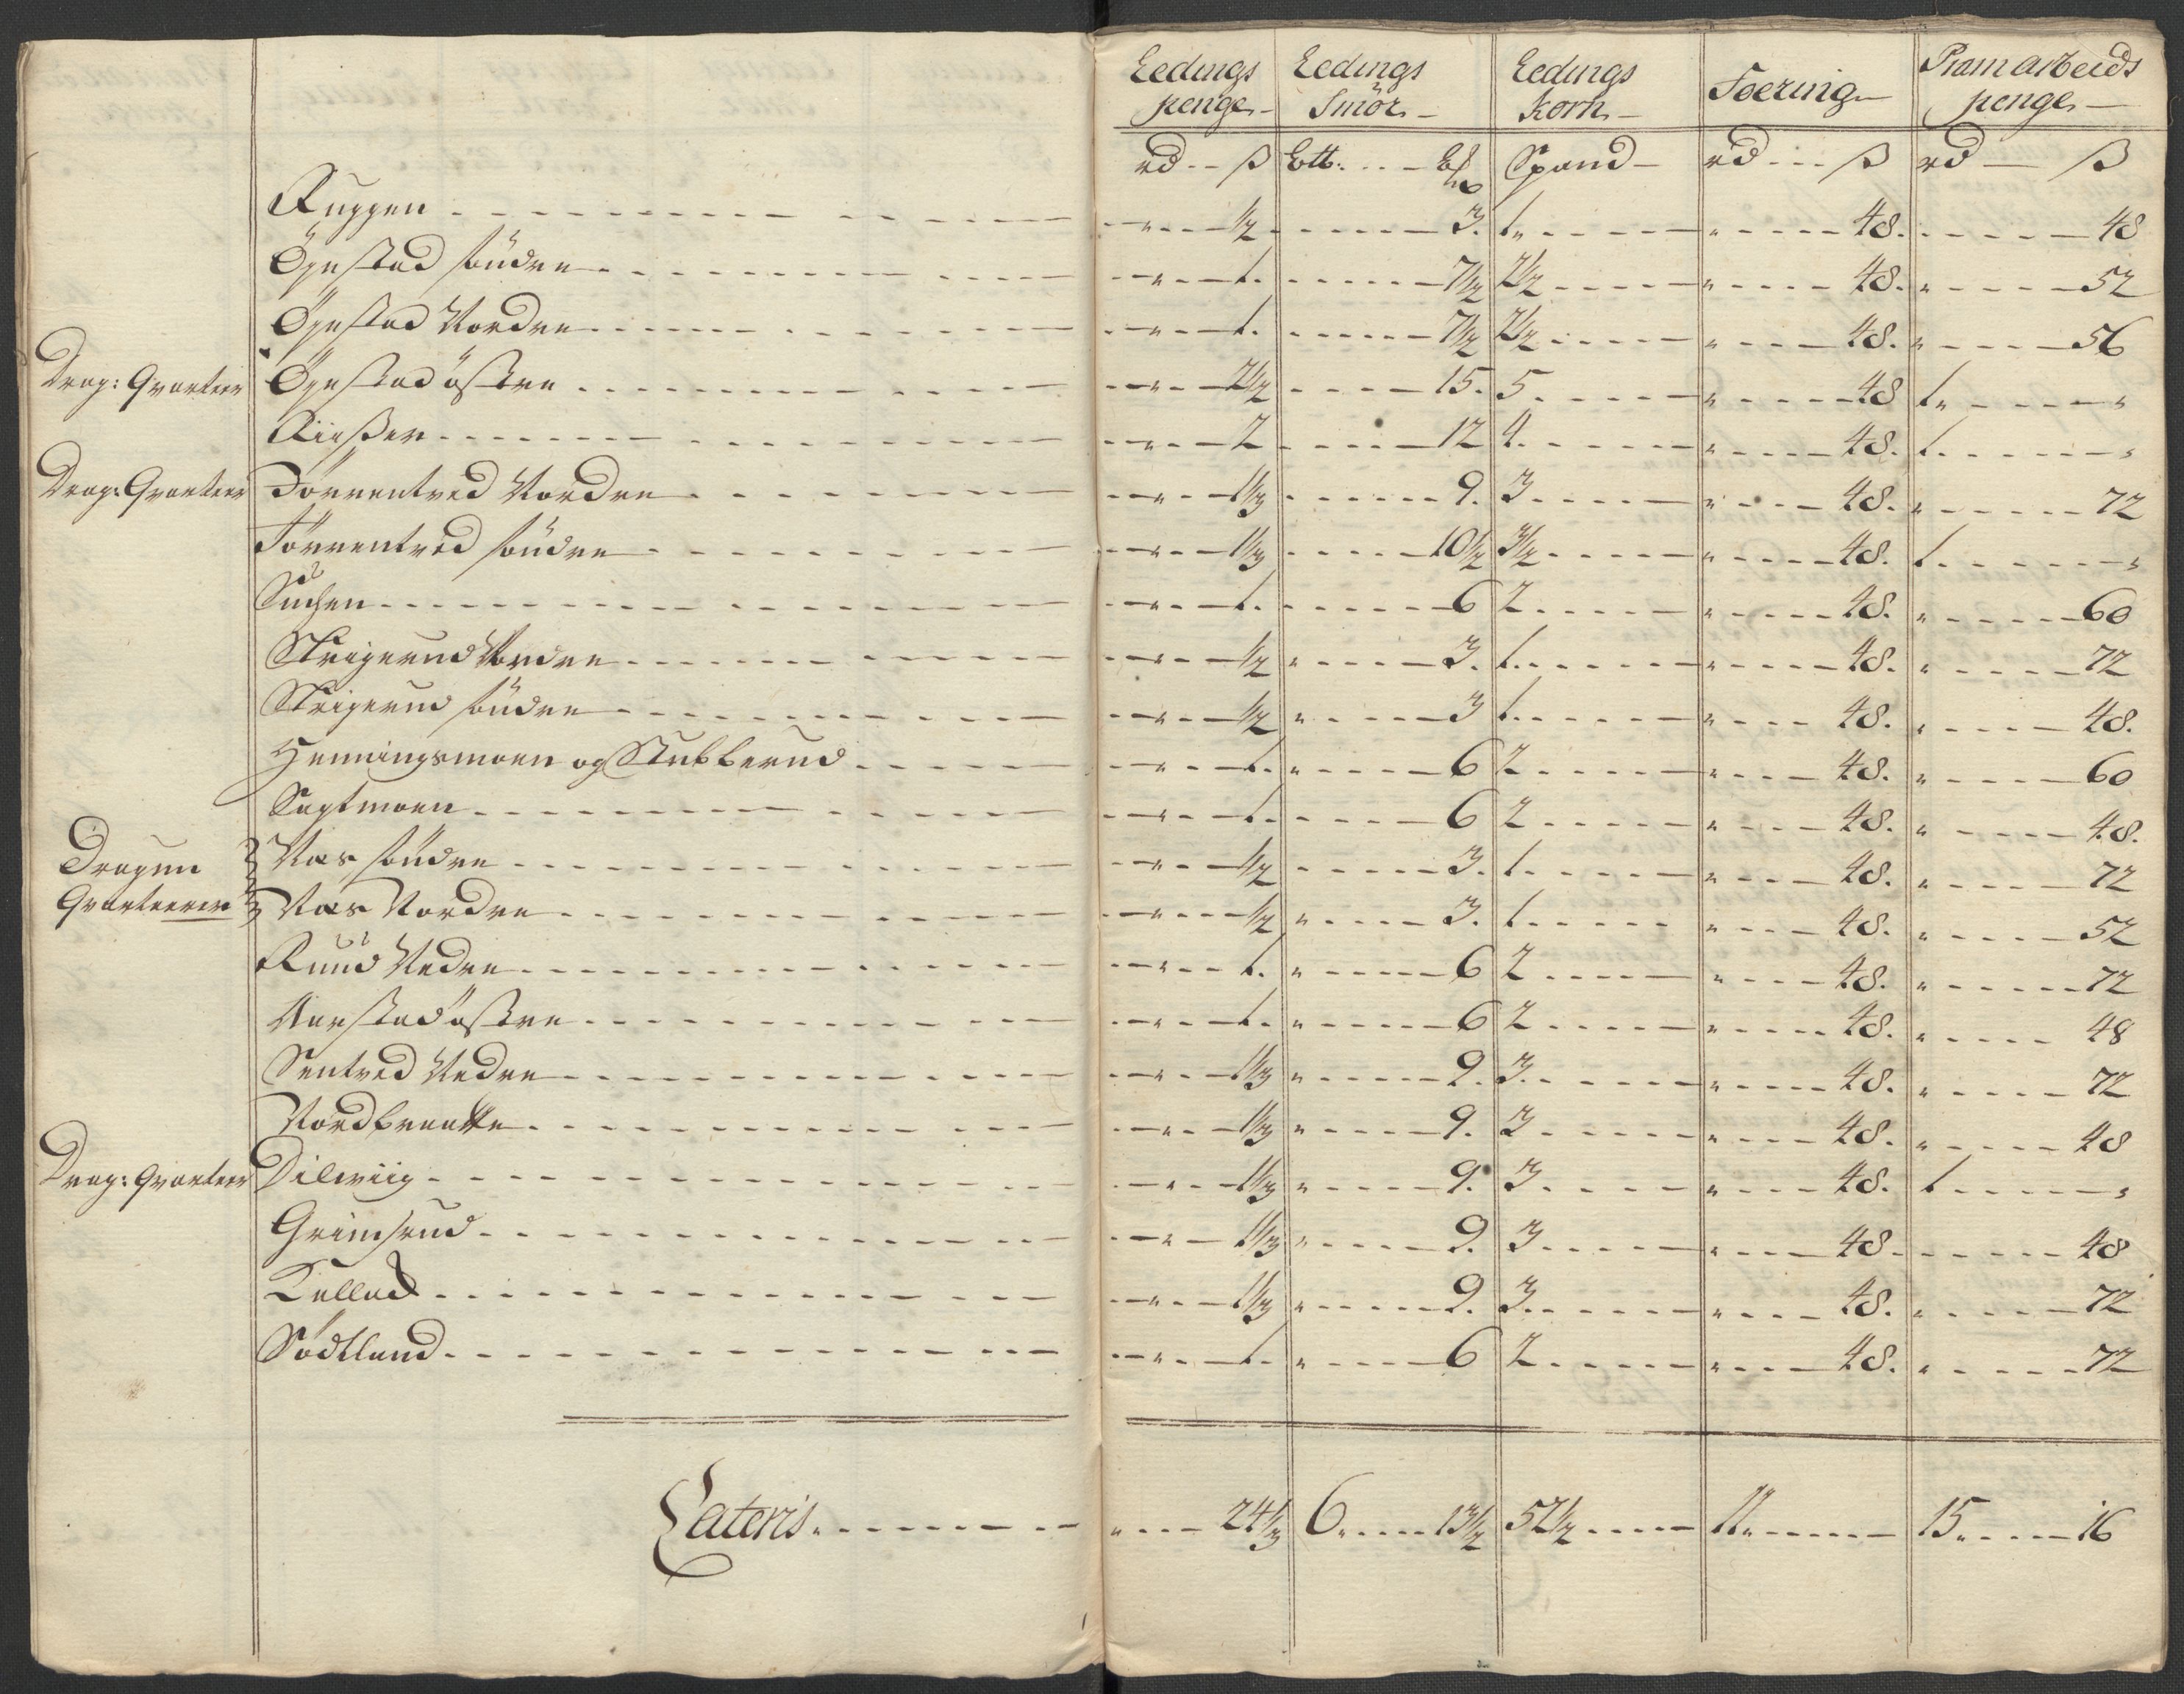 Ledings penge Ledings Smör Ledings korn Foering Pram arbeids penge
rd ß Ltt: Spand rd ß rd ß
Ruggen 1/2 3. 1. 48. 48
Ögestad söndre 1. 7 1/2 2 1/2 48. 52
Ögestad Nordre 1. 7 1/2 2 1/2 48. 56
Drag: Qvarteer Ögestad östre 2 1/2 15. 5 48 1.
2 12 4. 48. 1.
Drag: Qvarteer Törrentved Nordre 1 1/3 9. 3 48. 72
Törrentved söndre 1 1/3 10 1/2 3 1/2 48. 1.
1. 6 2 48. 60
Skrigerud Nordre 1/2 3. 1. 48. 72
Skrigerud söndre 1/2 3 1. 48. 48.
Henningsmoen og Stubberud 1. 6 2 48. 60
Sagtmoen 1. 6 2 48. 48.
Dragun Næs söndre 1/2 3. 1. 48. 72
Qvarteerer Næs Nordre 1/2 3. 1. 48. 52
Ruud Nedre 1. 6 2 48. 72
Aarstad östre 1. 6 2 48. 48
Sentved Nedre 1 1/3 9. 3. 48. 72
Nordbraatte 1 1/3 9. 3 48. 48
Drag: Qvarteer Dileviig 1 1/3 9. 3 48. 1.
Grimsrud 1 1/3 9. 3 48. 48
Kullad 1 1/3 9. 3. 48. 72
Södtlund 1. 6 2 48. 72
Lateris 24 1/3 6. 13 1/2 52 1/2 11. 15. 16